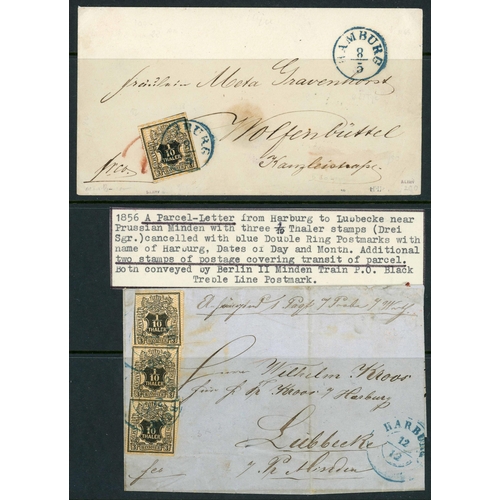 HAMBURG
8/5
Fräulein Meta Gravenhorst
Wolfenbüttel
Kanzleistrasse
frco.
BURG
10
THALER
1856 A Parcel-Letter from Harburg to Lubbecke near
Prussian Minden with three 1/10 Thaler stamps (Drei
Sgr.)cancelled with blue Double Ring Postmarks with
name of Harburg, Dates of Day and Month. Additional
two stamps of postage covering transit of parcel.
Both conveyed by Berlin II Minden Train P.O. Black
Treble Line Postmark.
10
THALER
10
THALER
10
THALER
Herrn Wilhelm Kroos
für
Kroos / Harburg
Lubbecke
/ Pr Minden
HARBURG
12/12